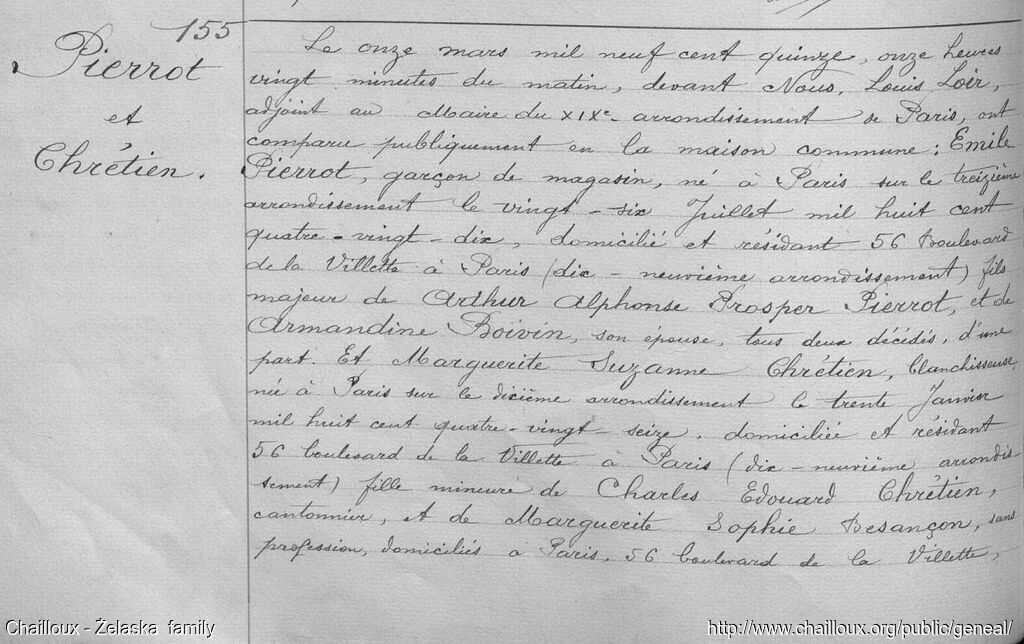 155
Pierrot
et
Chrétien.
Le onze mars mil neuf cent quinze, onze heures
vingt minutes du matin, devant Nous, Louis Loir,
adjoint au Maire du XIXe arrondissement de Paris, ont
comparu publiquement en la maison commune : Emile
Pierrot, garçon de magasin, né à Paris sur le treizième
arrondissement le vingt-six Juillet mil huit cent
quatre-vingt-dix, domicilié et résidant 56 Boulevard
de la Villette à Paris (dix-neuvième arrondissement) fils
majeur de Arthur Alphonse Prosper Pierrot, et de
Armandine Boivin, son épouse, tous deux décédés, d'une
part. Et Marguerite Suzanne Chrétien, blanchisseuse,
née à Paris sur le dixième arrondissement le trente Janvier
mil huit cent quatre-vingt-seize, domiciliée et résidant
56 boulevard de la Villette à Paris (dix-neuvième arrondis
sement) fille mineure de Charles Edouard Chrétien,
cantonnier, et de Marguerite Sophie Besançon, sans
profession, domiciliés à Paris, 56 boulevard de la Villette,
Chailloux - Żelaska family
http://www.chailloux.org/public/geneal/